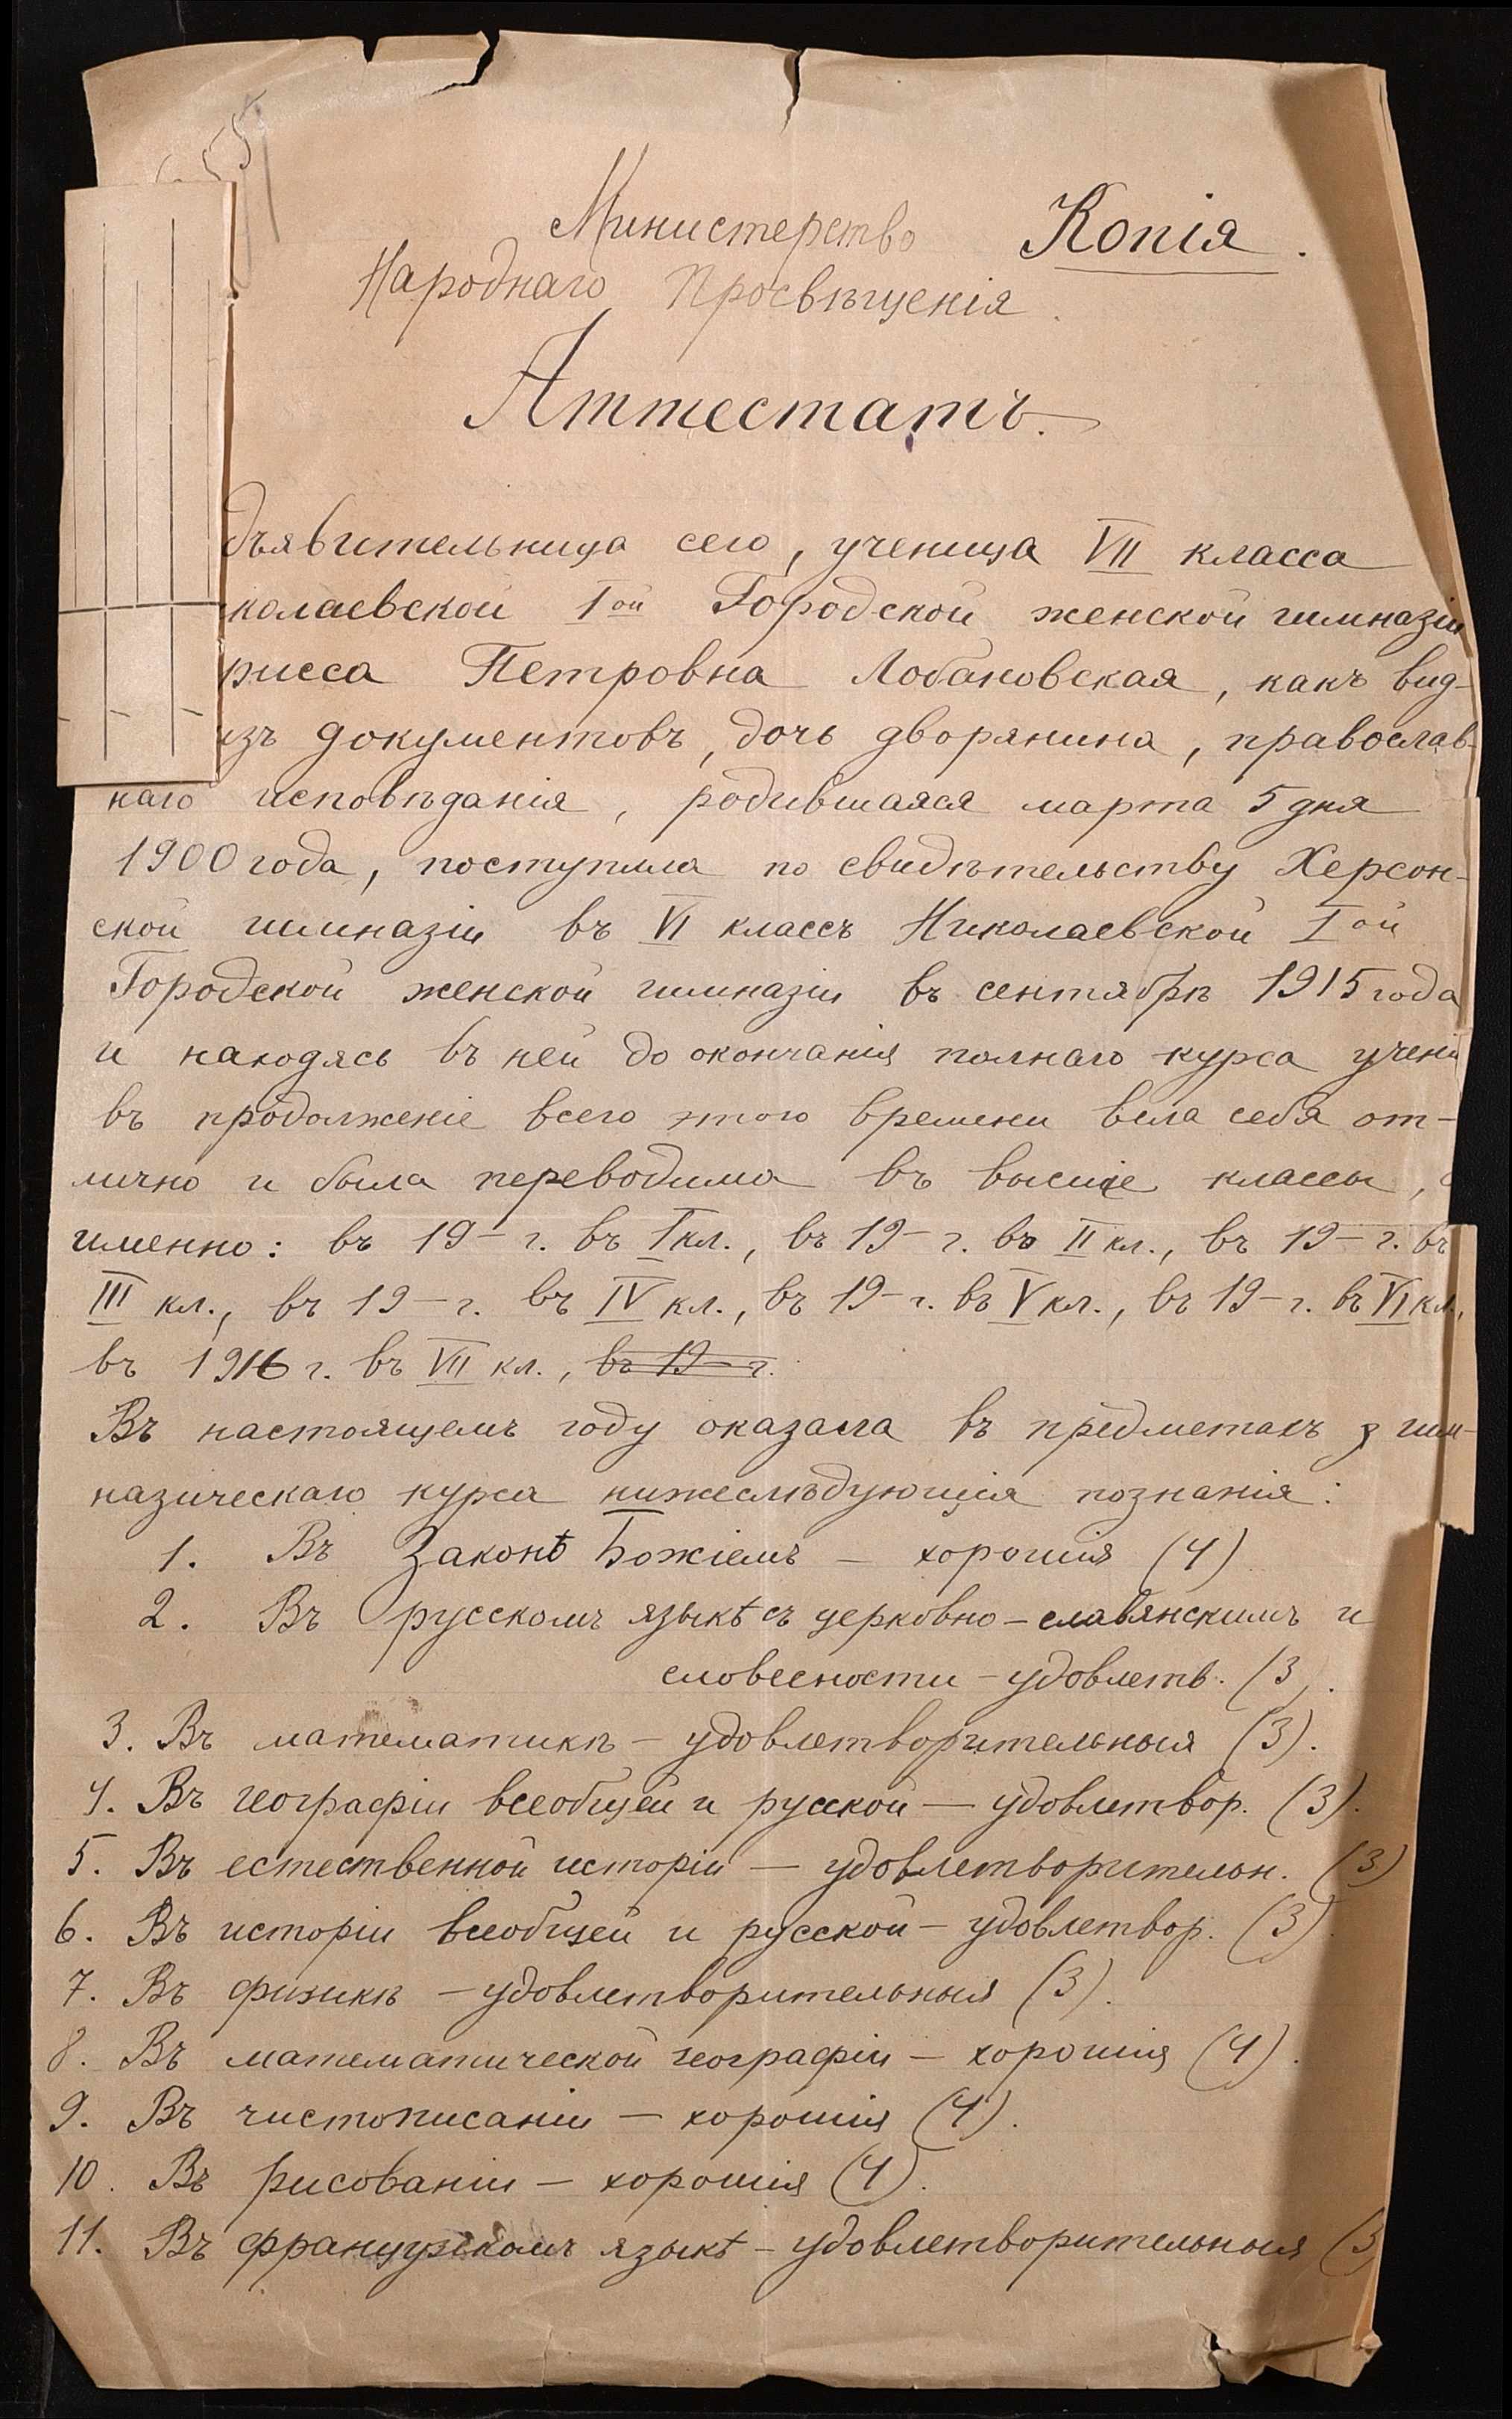 Министерство Копія.
Народнаго Просвѣщенія.
Аттестатъ.
бъявительница сего, ученица VII класса
колаевской Iой Городской женской гимназіи
рисса Петровна Лобановская, какъ вид-
изъ документовъ, дочь дворянина, православ-
наго исповѣданія, родившаяся марта 5 дня
1900 года, поступила по свидѣтельству Херсон-
ской гимназіи въ VI классъ Николаевской Iой
Городской женской гимназіи въ сентябрѣ 1915 года
и находясь въ ней до окончанія полнаго курса учені
въ продолженіе всего этого времени вела себя от-
лично и была переводима въ высшіе классы,
именно: въ 19– г. въ I кл., въ 19– г. въ II кл., въ 19– г. въ
III кл., въ 19– г. въ IV кл., въ 19– г. въ V кл., въ 19– г. въ VI кл.,
въ 1916 г. въ VII кл., въ 19– г.
Въ настоящемъ году оказала въ предметахъ гим-
назическаго курса нижеслѣдующія познанія:
1. Въ Законѣ Божіемъ – хорошія (4)
2. Въ русскомъ языкѣ съ церковно-славянскимъ и
словесности – удовлетв. (3).
3. Въ математикѣ – удовлетворительныя (3).
4. Въ географіи всеобщей и русской – удовлетвор. (3).
5. Въ естественной исторіи – удовлетворительн. (3)
6. Въ исторіи всеобщей и русской – удовлетвор. (3).
7. Въ физикѣ – удовлетворительныя (3).
8. Въ математической географіи – хорошія (4).
9. Въ чистописаніи – хорошія (4).
10. Въ рисованіи – хорошія (4).
11. Въ французскомъ языкѣ – удовлетворительныя (3